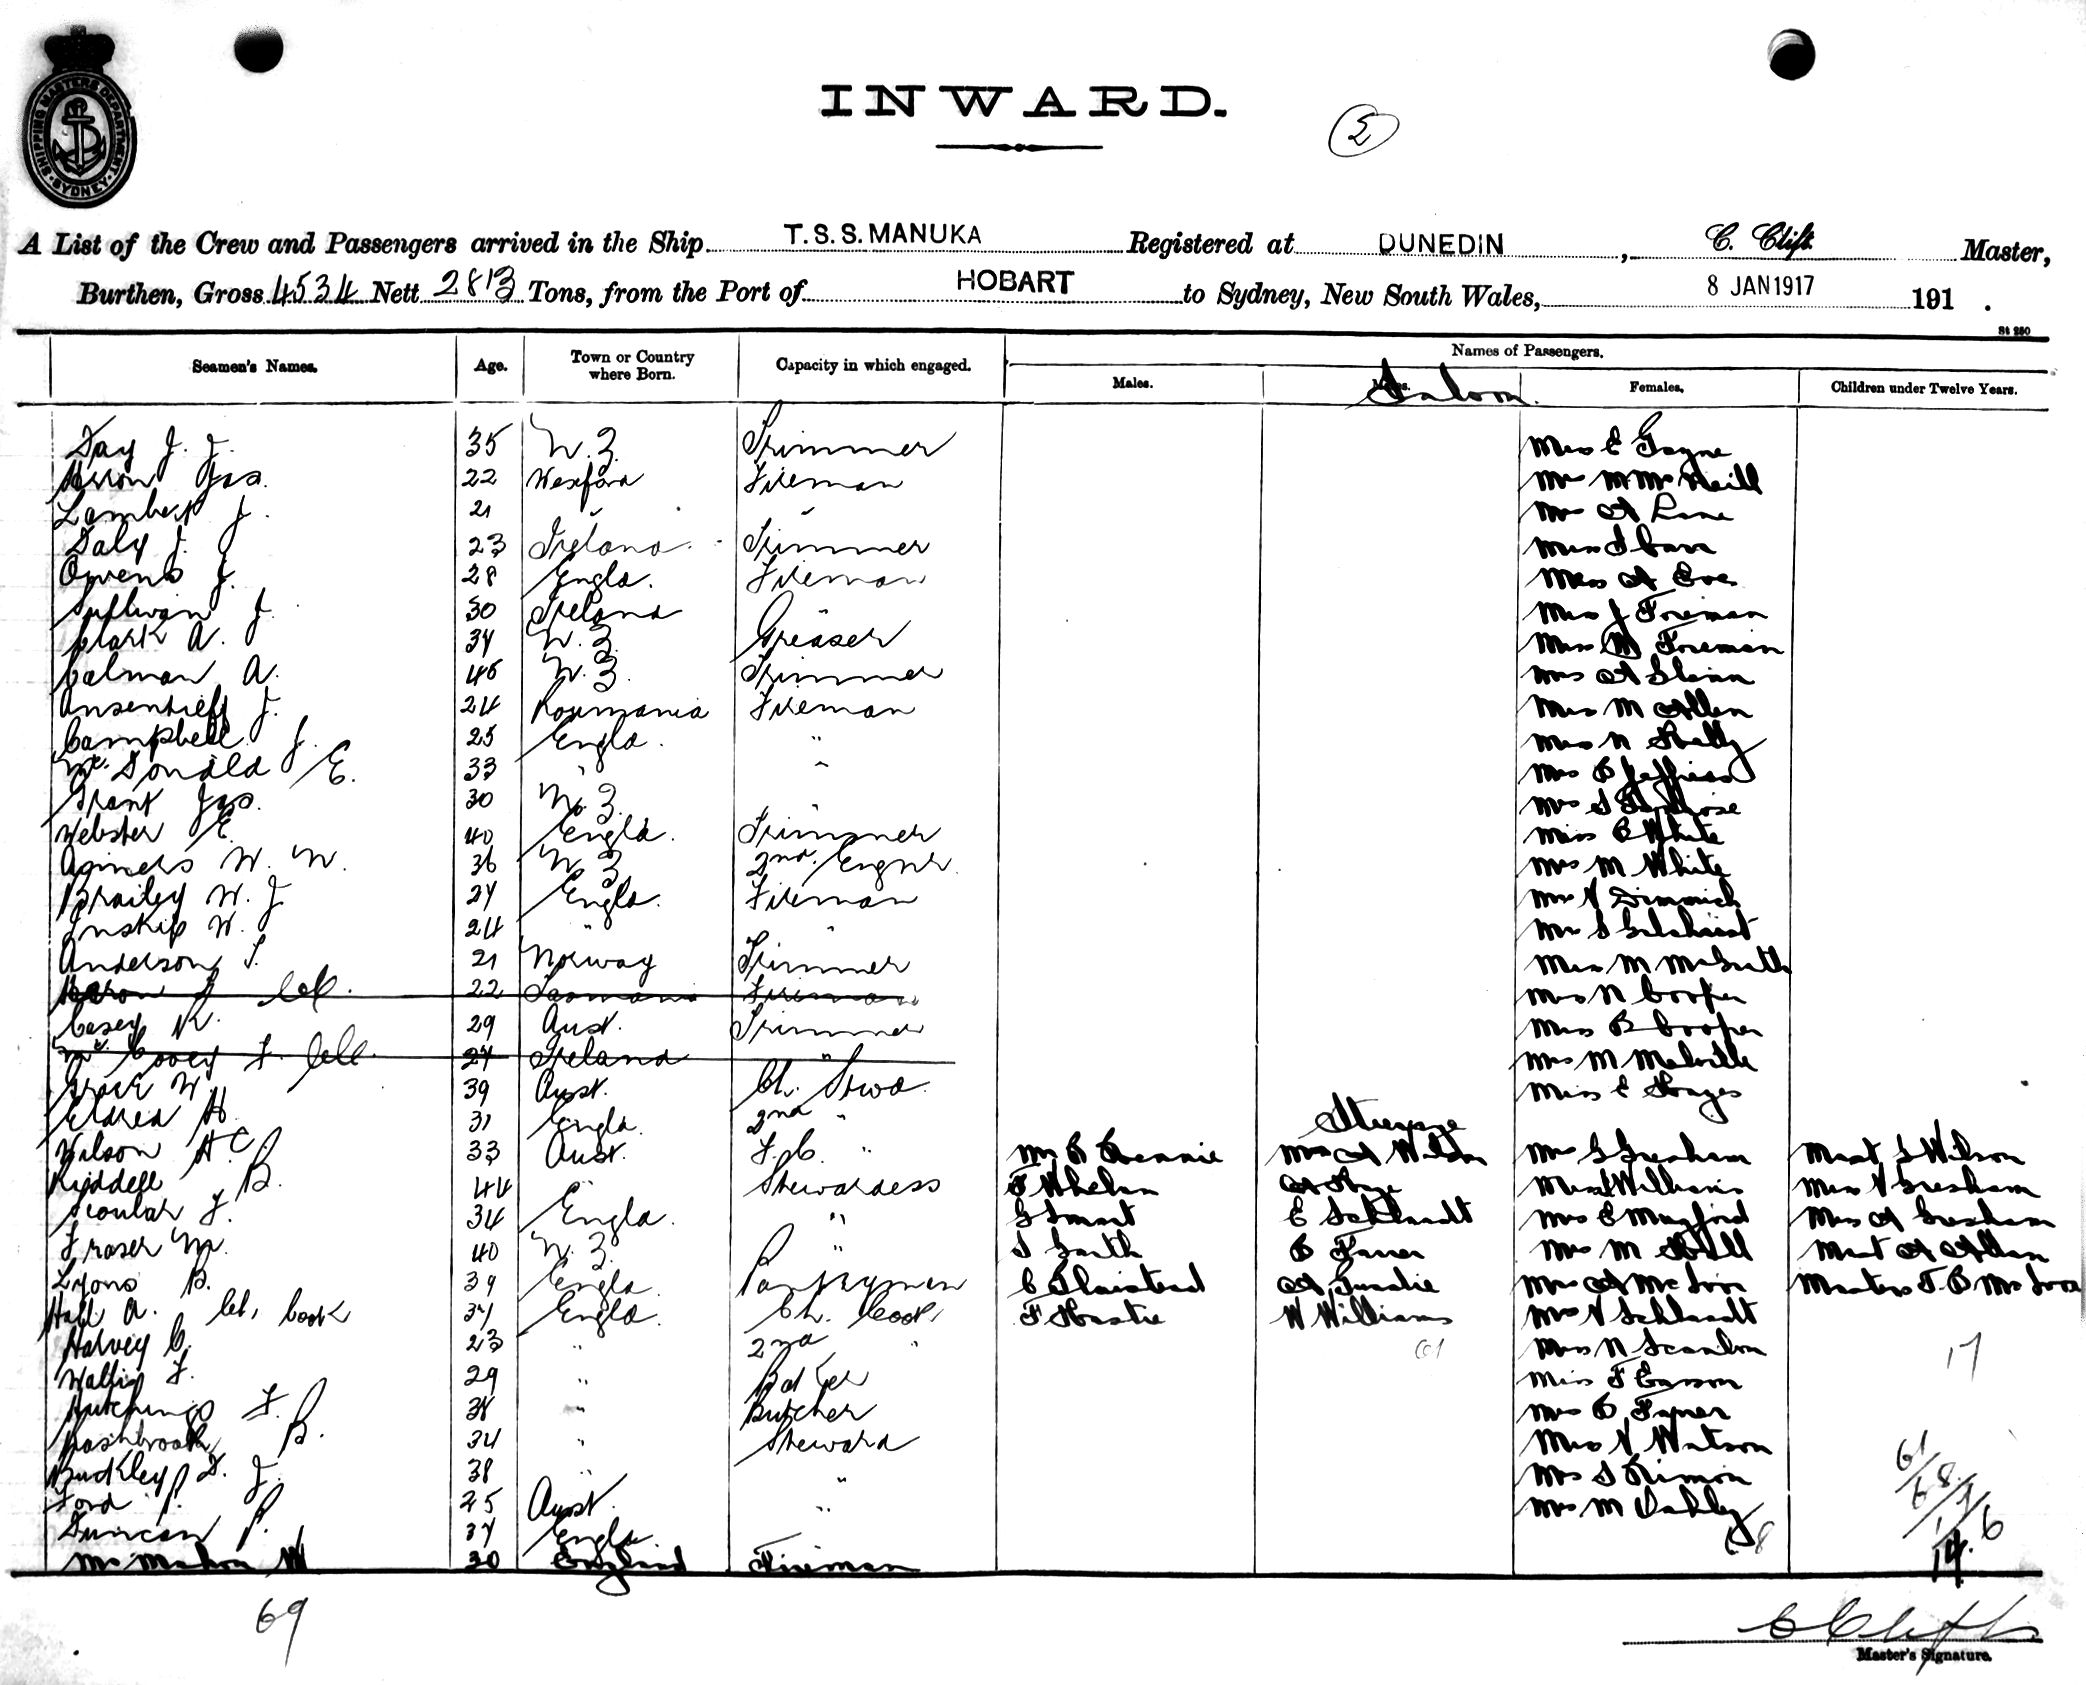 INWARD.
2
SHIPPING MASTERS DEPARTMENT SYDNEY
A List of the Crew and Passengers arrived in the Ship T.S.S. MANUKA Registered at DUNEDIN, C. Clift Master,
Burthen, Gross 4534 Nett 2813 Tons, from the Port of HOBART to Sydney, New South Wales, 8 JAN 1917 191 .
St 280
Seamen's Names. Age. Town or Country where Born. Capacity in which engaged. Names of Passengers.
Males. Males. Females. Children under Twelve Years.
Saloon.
Day J. J. 35 N.Z. Trimmer Mrs E Gayne
Heron Jas. 22 Wexford Fireman Mrs M McNeill
Lambert J. 21 " " Mrs A Lane
Daly J. 23 Ireland. Trimmer Miss Carr
Owens J. 28 Engld. Fireman Miss A Eve
Sullivan J. 30 Ireland " Miss J Foreman
Clark A. 34 N.Z. Greaser Miss M Foreman
Calman A. 46 N.Z. Trimmer Mrs A Glenn
Ansentieff J. 24 Roumania Fireman Miss M Allen
Campbell J. 25 Engld. " Miss N Kelly
McDonald E. 33 " " Mrs Jeffries
Grant Jas. 30 N.Z. " Mrs
Webster E. 40 Engld. Trimmer Miss White
W. W. 36 N.Z. 2nd. Engnr. Mrs M White
Brailey W. J 24 Engld. Fireman Mrs V Dimmick
Inskip W. 24 " " Mrs S Gilchrist
Anderson T. 21 Norway Trimmer Miss M McGrath
Heron J 22 Tasmania Fireman Mrs N Cooper
Casey W. 29 Aust. Trimmer Miss B Cooper
McCovey F. 24 Ireland " Mrs M Melville
Grose W. 39 Aust. Ch. Stwd. Miss E Hayes
H. 31 Engld. 2nd "
Steerage
Wilson H C 33 Aust. F.C. " Mr Rennie Mrs A Wilson Mrs G Gresham Mast L Wilson
Riddell B. 44 " Stewardess F Whelan A Mrs Williams Miss V Gresham
Scoular F. 34 Engld. " G Smart E Schlaadt Mrs E Mayford Miss A Gresham
Fraser M. 40 N.Z. " Garth Mrs M Hall Mast A Allan
Lyons B. 39 Engld. Pantryman C Plaistead A Mrs A McIvor Masters McIvor
Hall A. Ch. Cook 34 Engld. Ch. Cook. F Hastie W Williams Mrs V Schlaadt
Harvey C. 23 " 2nd " 61 Miss N Scanlon 17
Wallis F. 29 " Baker Miss F Easson
Hutchings F. 38 " Butcher Mrs
B. 34 " Steward Miss V Watson
Buckley D. J. 38 " " Mrs Rimon
Ford P. 25 Aust. " Mrs M Oakley
Duncan P. 34 Engld. 68
McMahon W 30 England Fireman
61
68
17
146
14
69
C Clift
Master's Signature.